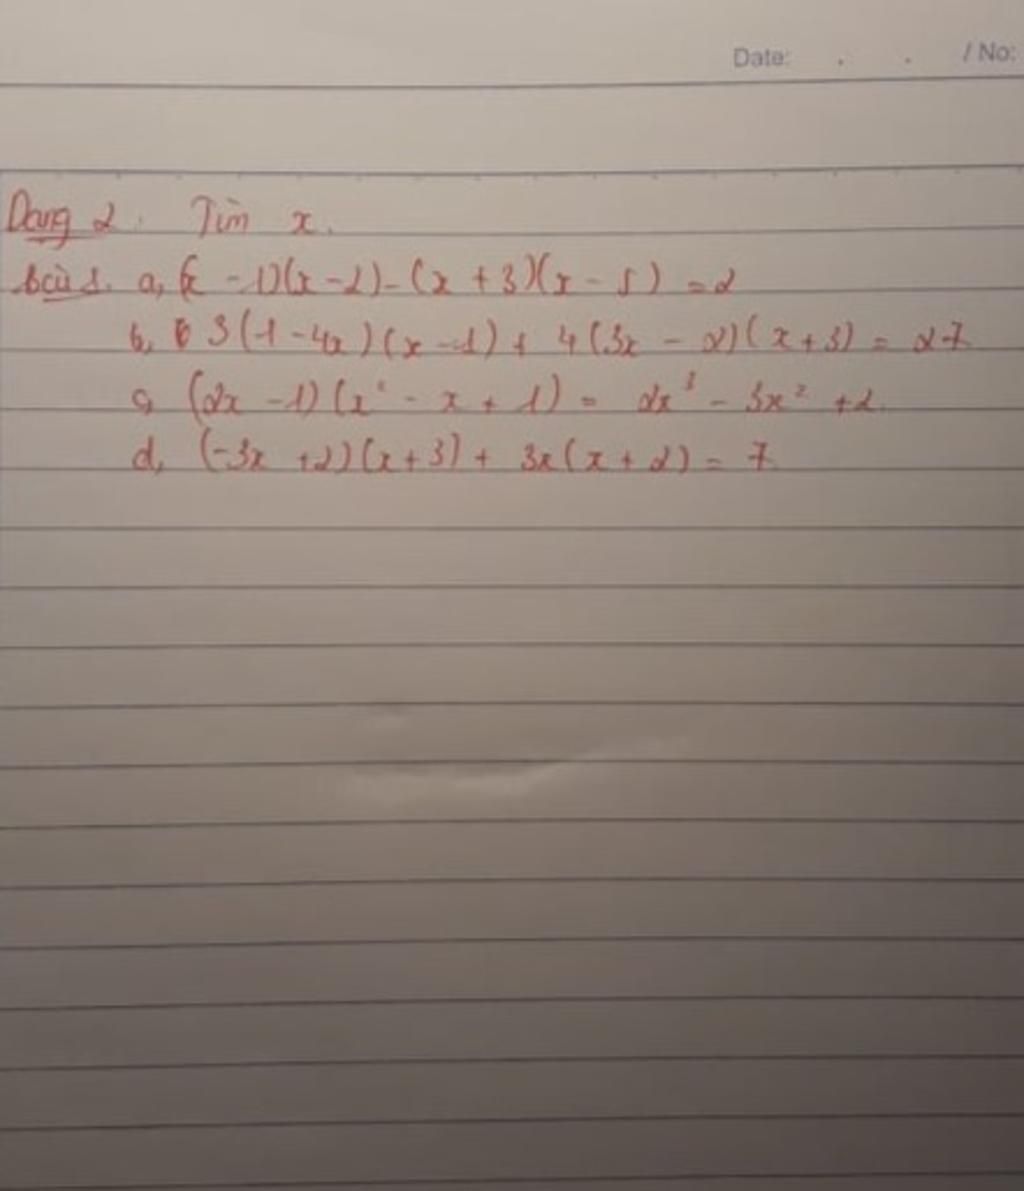 Date: . . / No:
Dạng 2. Tìm x.
bài 1. a, (x - 1)(x - 2) - (x + 3)(x - 5) = 2
b, 3(1 - 4x)(x - 1) + 4(3x - 2)(x + 3) = 27
c, (2x - 1)(x² - x + 1) = 2x³ - 3x² + 2
d, (-3x + 2)(x + 3) + 3x(x + 2) = 7